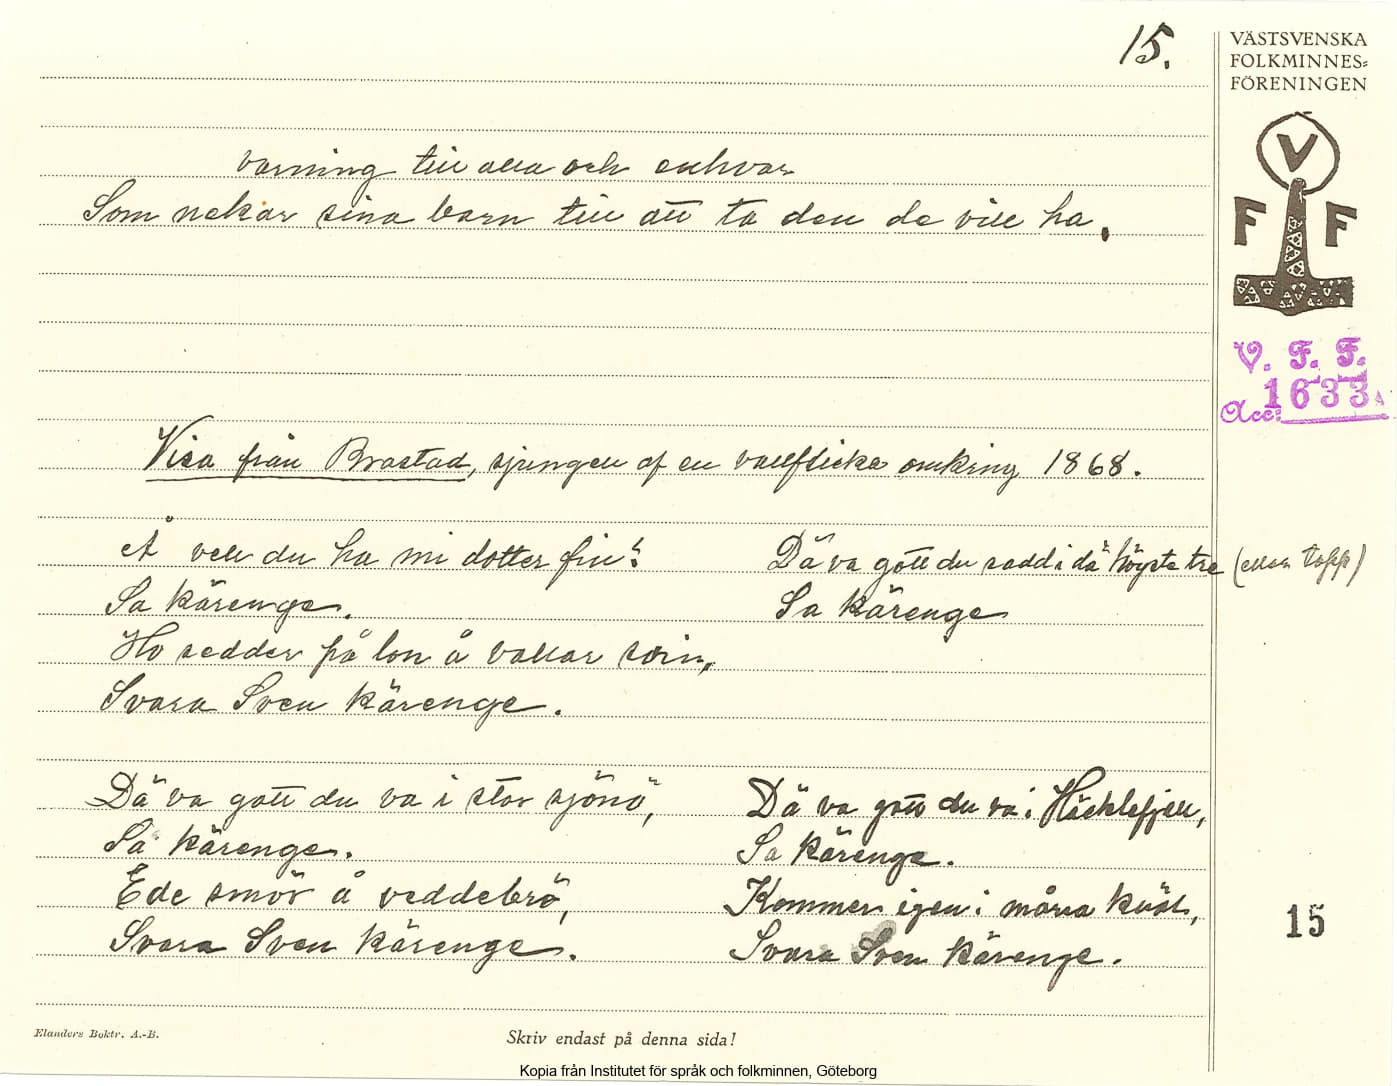 15.
VÄSTSVENSKA
FOLKMINNES=
FÖRENINGEN
V
F F
V. F. F.
Acc: 1633
varning till alla och enhvar
Som nekar sina barn till att ta den de vill ha.
Visa från Brastad, sjungen af en vallflicka omkring 1868.
Å vell du ha mi dotter fin?
Sa kärenge.
Ho sedder på lon å vallar svin,
Svara Sven kärenge.
Dä va gott du sadd i dä högsta tre (eller topp)
Sa kärenge
Dä va gott du va i stor sjönö,
Sa kärenge.
Ede smör å veddebrö,
Svara Sven kärenge.
Dä va gott du va i Häcklefjell,
Sa kärenge.
Kommer igen i måra kväl,
Svara Sven kärenge.
15
Elanders Boktr. A.-B.
Skriv endast på denna sida!
Kopia från Institutet för språk och folkminnen, Göteborg